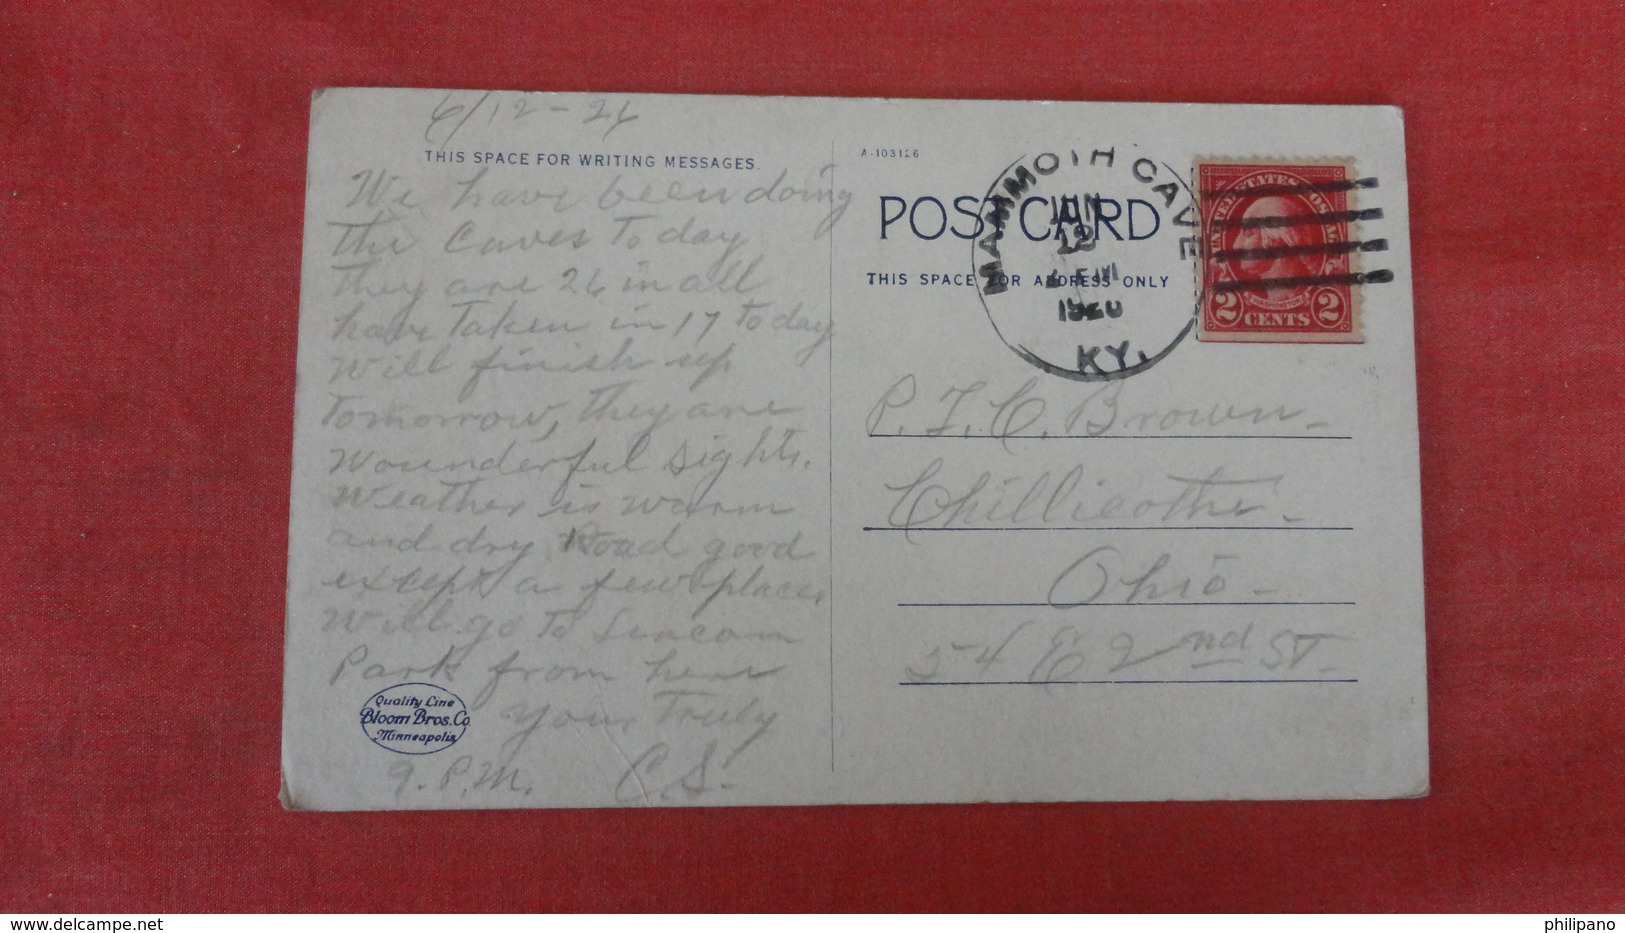 6/12-26
THIS SPACE FOR WRITING MESSAGES.
We have been doing
the Caves To day
they are 26 in all
have Taken in 17 To day
will finish up
tomorrow, they are
wounderful sights.
Weather is warm
and dry Road good
except a few places
Will go to Lincoln
Park from here
Yours Truly
9. P.M. C. S.
Quality Line
Bloom Bros. Co
Minneapolis
A-103126
POST CARD
THIS SPACE FOR ADDRESS ONLY
MAMMOTH CAVE
JUN
12
1926
KY.
UNITED STATES POSTAGE
WASHINGTON
2 CENTS 2
P. F. C. Brown-
Chillicothe-
Ohio-
54 E 2nd ST-
delcampe.net
philipano